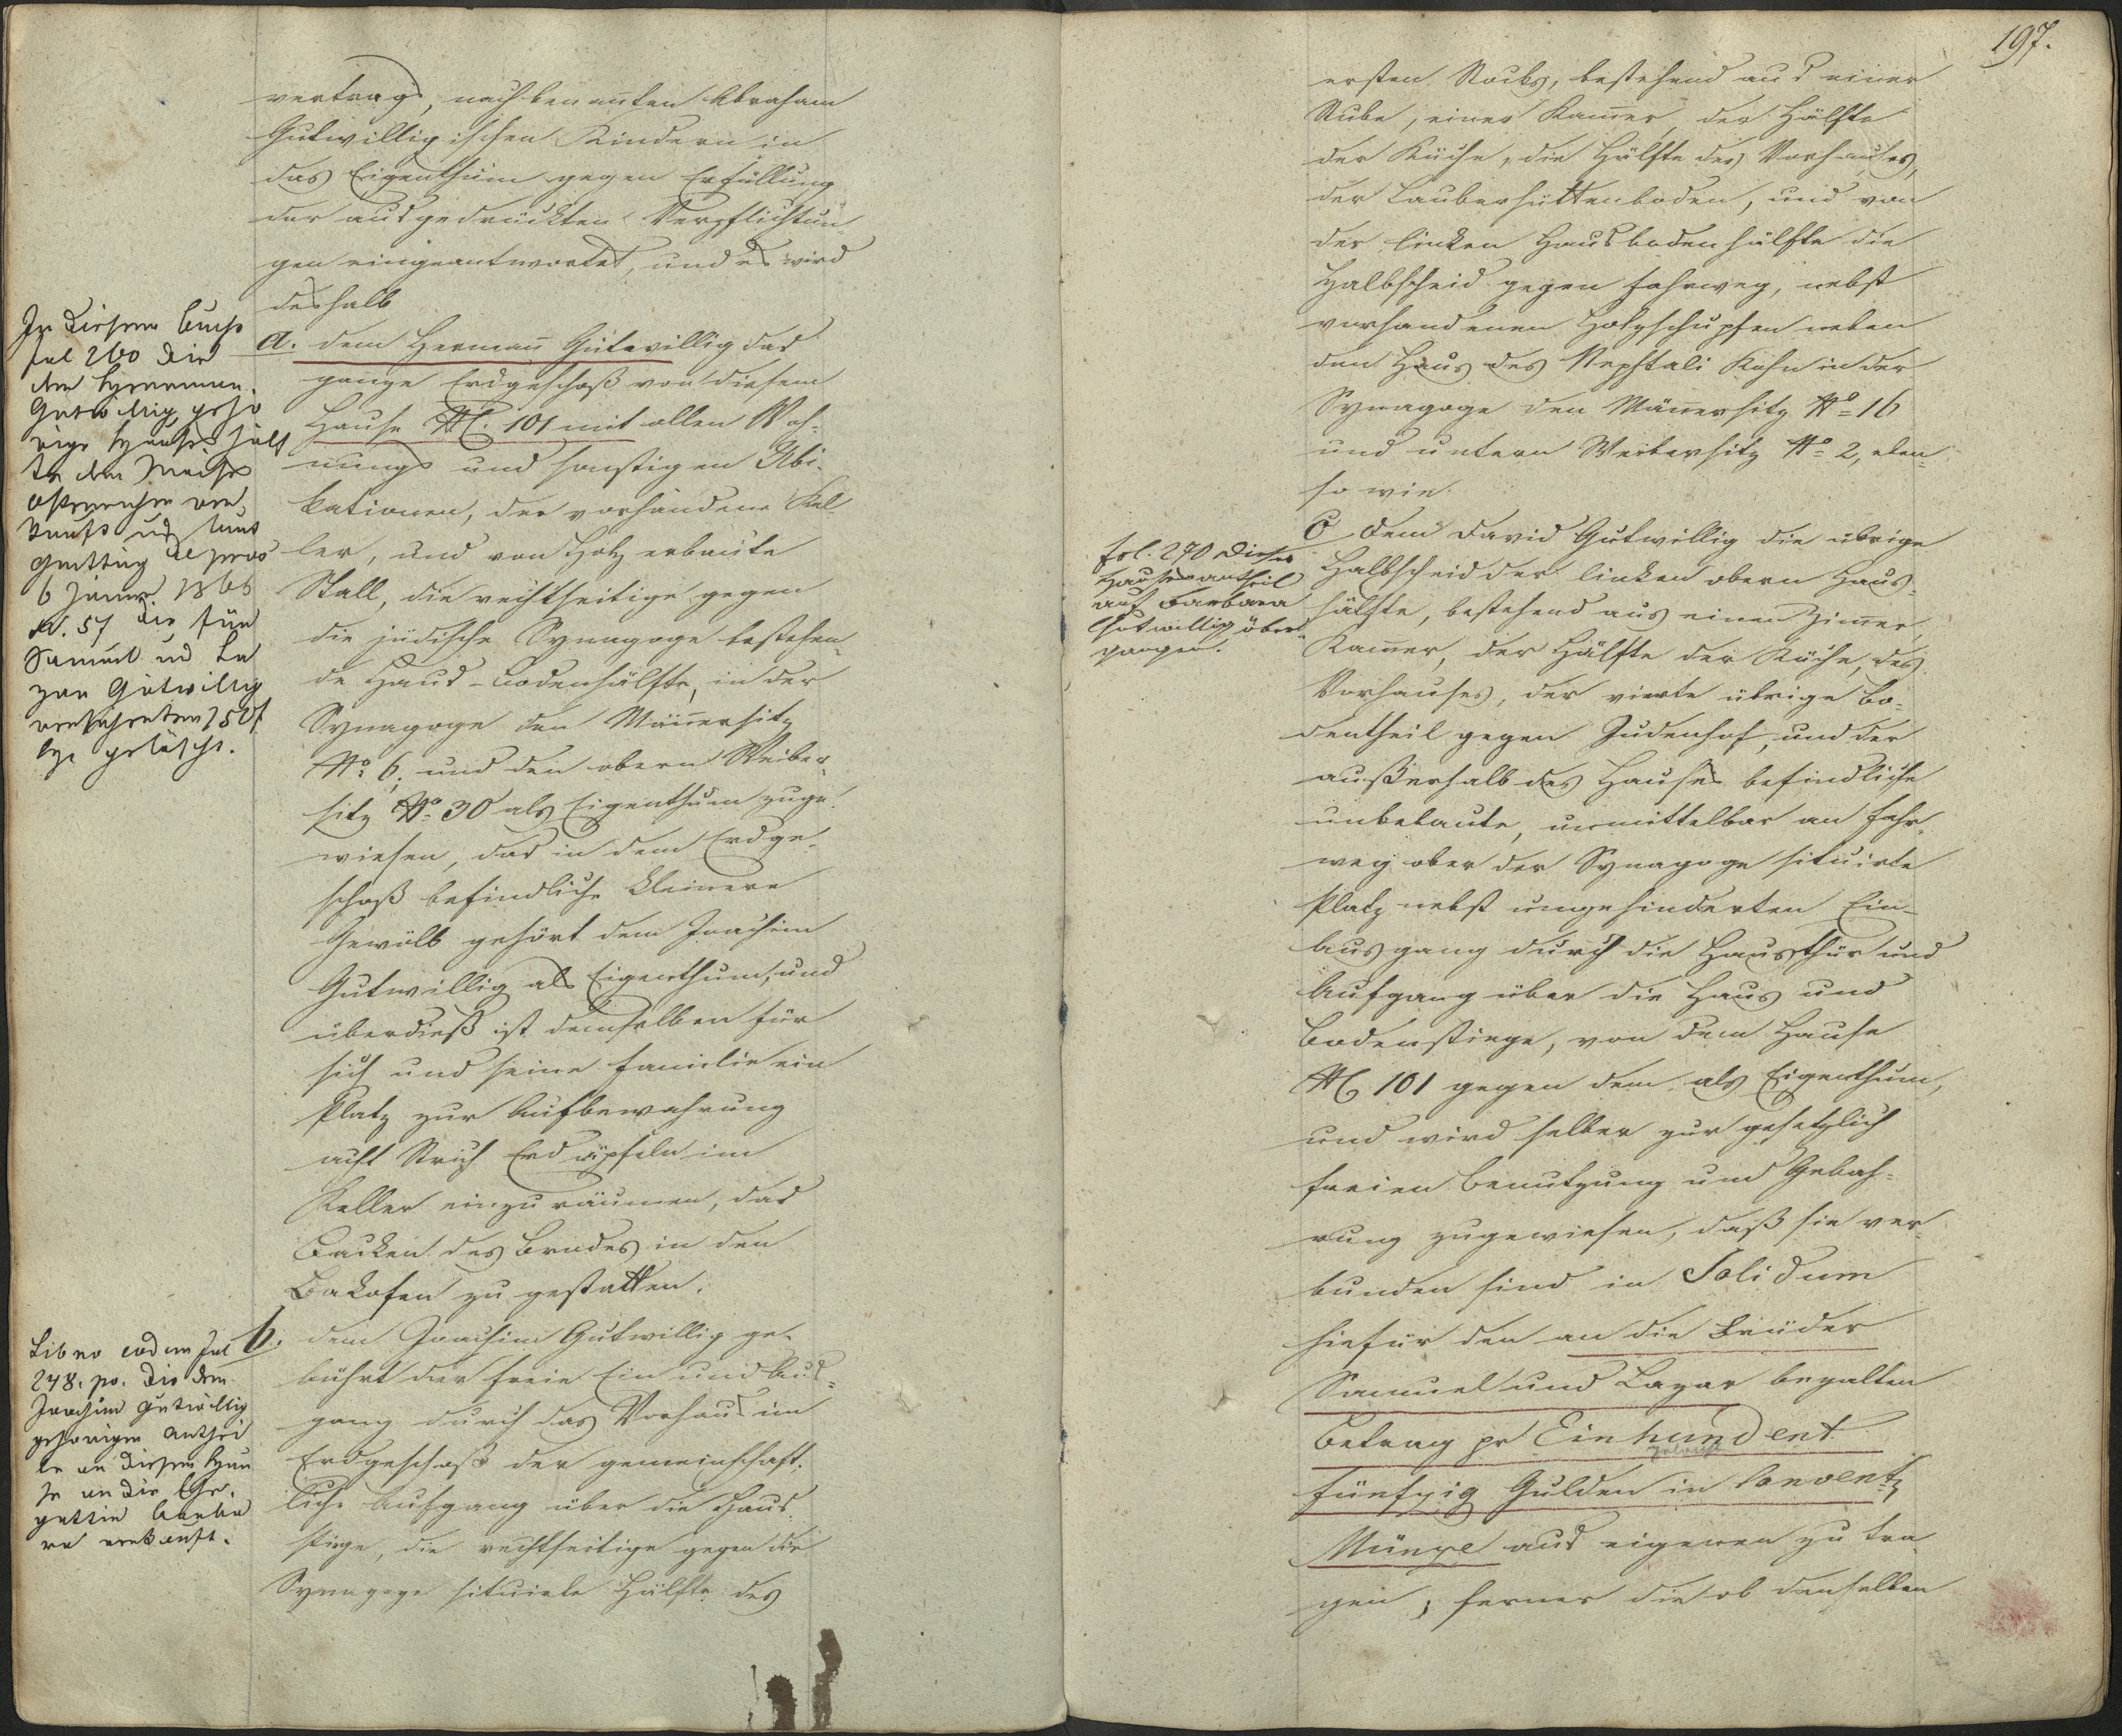 vertrags, nachbenannten Abraham
Gutwilligischen Kindern in
das Eigenthum gegen Erfüllung
der ausgedrückten Verpflichtun-
gen eingeantwortet, und es wird
deshalb
a. dem Hermann Gutwillig das
ganze Erdgeschoß von diesem
Hause NC. 101 mit allen Woh-
nungs und sonstigen Ubi-
kationen, der vorhandene Kel
ler, und von Holz erbaute
Stall, die rechtseitige gegen
die jüdische Synagoge bestehen-
de Haus-Bodenhälfte, in der
Synagoge den Männersitz
No 6. und den obern Weiber-
sitz No 30 als Eigenthum zuge-
wiesen, das in dem Erdge-
schoß befindliche kleinere
Gewölb gehört dem Joachim
Gutwillig als Eigenthum, und
überdieß ist demselben für
sich und seine Familie ein
Platz zur Aufbewahrung
acht Strich Erdäpfeln im
Keller einzuräumen, das
Backen des Brodes in den
Backofen zu gestatten.
b. dem Joachim Gutwillig ge-
bührt der freie Ein und Aus-
gang durch das Vorhaus im
Erdgeschoß der gemeinschaft-
liche Aufgang über die Haus-
stiege, die rechtseitige gegen die
Synagoge situirte Hälfte des
In diesem Buche
Fol 260 die
dem Hermann
Gutwillig gehö
rige Haushälf
te dem
ver
kauft und laut
Quittung de pras
6 Jänner 1865
N. 57 die für
Samuel und La
zar Gutwillig
versicherten 150 f
gelöscht.
Libro eodem Fol
248. po. die dem
Joachim Gutwillig
gehörigen Anthei
le an diesem Hau
se an die Ehe-
gattin Barba
ra verkauft.
197.
ersten Stocks, bestehend aus einer
Stube, einer Kammer, der Hälfte
der Küche, die Hälfte des Vorhauses,
der Lauberhüttenboden, und von
der linken Hausbodenhälfte die
Halbscheid gegen Fahrweg, nebst
vorhandenen Holzschupfen neben
den Haus des Nephtali Kohn in der
Synagoge den Männersitz No 16
und untern Weibersitz No 2, eben-
so wie
C dem David Gutwillig die übrige
Halbscheid der linken obern Haus-
hälfte, bestehend aus einen Zimmer,
Kammer, der Hälfte der Küche, des
Vorhauses, der vierte übrige Bo-
dentheil gegen Judenhof, und der
außerhalb des Hauses befindliche
unbebaute, unmittelbar an Fahr-
weg ober der Synagoge situirte
Platz nebst ungehinderten Ein-
Ausgang durch die Hausthür und
Aufgang über die Haus und
Bodenstiege, von dem Hause
NC 101 gegen dem als Eigenthum,
und wird selber zur gesetzlich
freien Benutzung und Gebah-
rung zugewiesen, daß sie ver-
bunden sind in Solidum
hiefür den an die Brüder
Samuel und Lazar bezalten
Betrag pr Einhundert
fünfzig Gulden in Convent:
Münze aus eigenen zu tra
gen, ferner die ob denselben
fol. 270 dieser
Hausantheil
auf Barbara
Gutwillig über-
gangen.
gelöscht